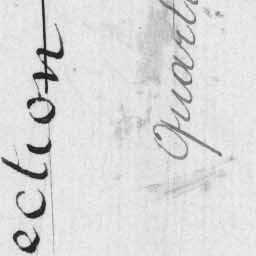 ection
Quart